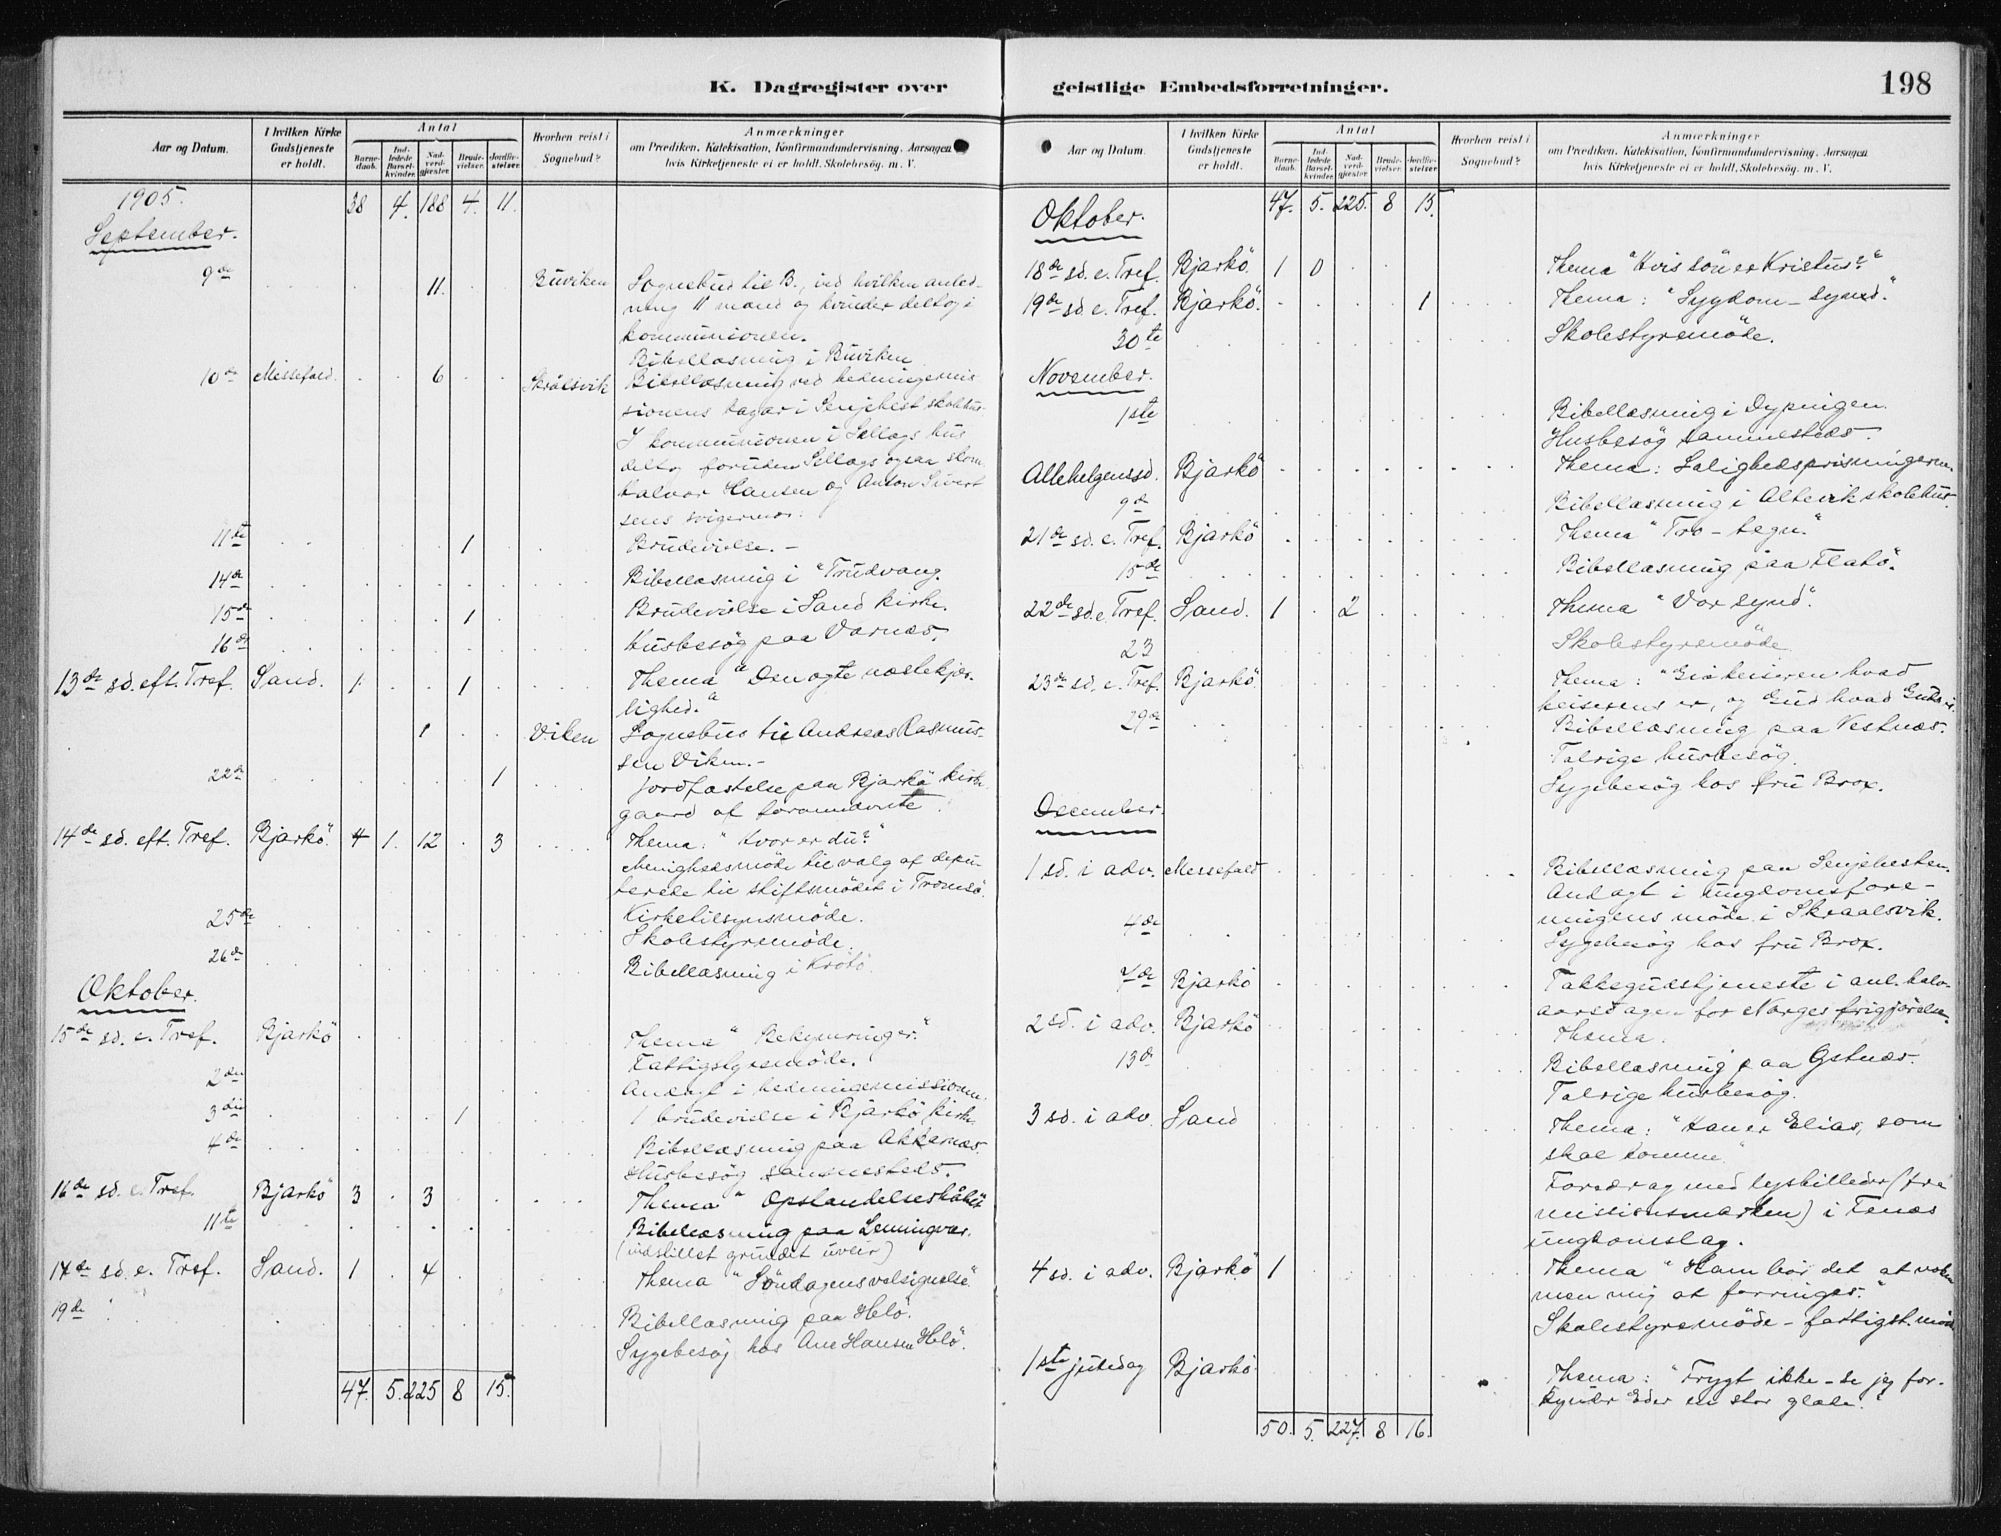 K. Dagregister over
Aar og Datum.
I hvilken Kirke Gudstjeneste er holdt.
Antal
Barne-daab.
Ind-ledede Barsel-kvinder.
Nad-verd-gjæster.
Brude-vielser.
Jordfæ-stelser.
Hvorhen reist i Sognebud?
Anmærkninger
om Prædiken, Katekisation, Konfirmandundervisning, Aarsagen
hvis Kirketjeneste ei er holdt, Skolebesøg. m. V.
1905. 38 4. 188 4. 11.
September.
9de 11. Buviken Sognebud til B., ved hvilken anled-
ning 11 mand og kvinder deltog i
kommunionen.
Bibellæsning i Buviken
10de Messefald. 6 Skrålsvik Bibellæsning ved hedningemis-
sionens dag i Senjehest skolehus.
I kommunionen i Sellags hus
deltog foruden Sellags ogsaa skom.
Halvor Hansen og Anton Sivert
sens svigermor.
11te 1 Brudevielse. –
14de Bibellæsning i "Trudvang.
15de 1 Brudevielse i Sand kirke.
16de Husbesøg paa Varnæs.
13de sd. eft. Tref. Sand. 1 1 Thema "Den ægte næstekjær-
lighed."
1 Viken Sognebud til Andreas Rasmus-
sen Viken. –
22de 1 Jordfæstelse paa Bjarkö kirke
gaard af forannævnte.
14de sd. eft. Tref. Bjarkö. 4 1. 12 3 Thema: "Hvor er du?"
Menighedsmøde til valg af depu-
terede til stiftsmødet i Tromsö.
25de Kirketilsynsmöde.
Skolestyremöde.
26de Bibellæsning i Krötö.
Oktober.
15de sd. e. Tref. Bjarkö Thema "Bekymringer."
2den Fattigstyremöde.
Andagt i hedningemissionen.
3die 1 1 brudevielse i Bjarkö kirke
4de Bibellæsning paa Akkarnæs.
Husbesøg sammesteds.
16de sd. e. Tref. Bjarkö 3 3 Thema "Opstandelseshåbet
11te Bibellæsning paa Lemmingvær.
(indstillet grundet uveir)
17de sd. e. Tref. Sand. 1 4 Thema "Söndagens velsignelse"
19de Bibellæsning paa Helö.
Sygebesøg hos Ane Hansen Helö.
47. 5. 225 8 15.
geistlige Embedsforretninger.
198
Aar og Datum.
I hvilken Kirke Gudstjeneste er holdt.
Antal
Barne-daab.
Ind-ledede Barsel-kvinder.
Nad-verd-gjæster.
Brude-vielser.
Jordfæ-stelser.
Hvorhen reist i Sognebud?
Anmærkninger
om Prædiken, Katekisation, Konfirmandundervisning, Aarsagen
hvis Kirketjeneste ei er holdt, Skolebesøg. m. V.
Oktober. 47. 5. 225. 8 15.
18de sd. e. Tref. Bjarkö. 1 0 Thema "Hvis sön er Kristus?"
19de sd. e. Tref. Bjarkö. 1 Thema: "Sygdom – synd."
30te Skolestyremöde.
November.
1ste Bibellæsning i Dypingen.
Husbesøg sammesteds.
Allehelgenssd. Bjarkö Thema: Salighedsprisningerne.
9de Bibellæsning i Altevik skolehus.
21de sd. e. Tref. Bjarkö Thema "Tro – tegn."
15de Bibellæsning paa Flatö.
22de sd. e. Tref. Sand. 1 2 Thema "Vor synd".
23 Skolestyremöde.
23de sd. e. Tref. Bjarkö Thema: "Giv keiseren hvad
keiserens er, og Gud hvad Guds er.
29de Bibellæsning paa Vestnæs.
Talrige husbesøg.
Sygebesøg hos fru Brox.
December.
1 sd. i adv. Messefald Bibellæsning paa Senjehesten.
Andagt i ungdomsfore-
ningens møde i Skraalsvik.
4de Sygebesøg hos fru Brox.
7de Bjarkö Takkegudstjeneste i anl. halv-
aarsdagen for Norges frigjörelse.
2 sd. i adv. Bjarkö Thema.
13de Bibellæsning paa Gstnæs.
Talrige husbesøg.
3 sd. i adv. Sand Thema: "Han er Elias, som
skal komme"
Foredrag med lysbilleder (fra
missionsmarken) i Fenæs
ungdomslag.
4 sd. i adv. Bjarkö 1 Thema "Ham bör det at vokse
men mig at forringes."
Skolestyremöde – fattigst. möde
1ste juledag Bjarkö Thema: "Frygt ikke – se jeg for-
kynder Eder en stor glæde."
50. 5. 227. 8 16.